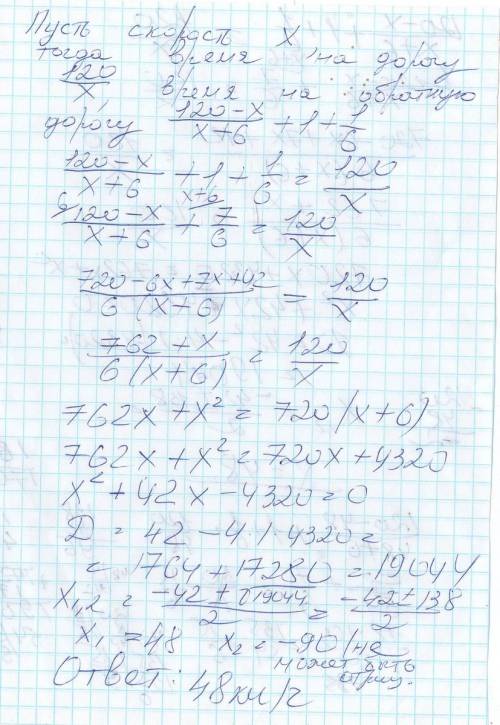 Пусть скорость x
тогда время на дорогу
120/x время на обратную
дорогу (120-x)/(x+6) + 1 + 1/6
(120-x)/(x+6) + 1 + 1/6 = 120/x
6 (120-x)/(x+6) + x+6 7/6 = 120/x
(720-6x+7x+42)/(6(x+6)) = 120/x
(762+x)/(6(x+6)) = 120/x
762x+x² = 720(x+6)
762x+x² = 720x+4320
x²+42x-4320=0
Д = 42-4·1·4320=
= 1764+17280=19044
x₁,₂ = (-42±√19044)/2 = (-42±138)/2
x₁=48 x₂=-90 (не
может быть
отриц.
Ответ: 48км/г